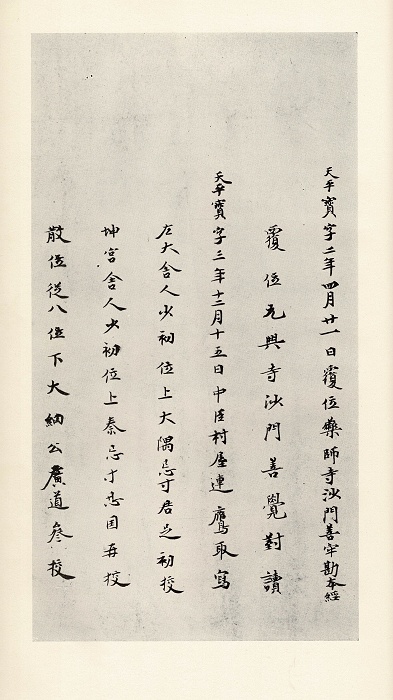 天平寶字二年四月廿一日覆位藥師寺沙門善牢勘本經
覆位元興寺沙門善覺對讀
天平寶字三年十二月十五日中臣村屋連鷹取寫
左大舍人少初位上大隅忌寸君足初校
坤宮舍人少初位上秦忌寸忍國再校
散位從八位下大網公廣道參校